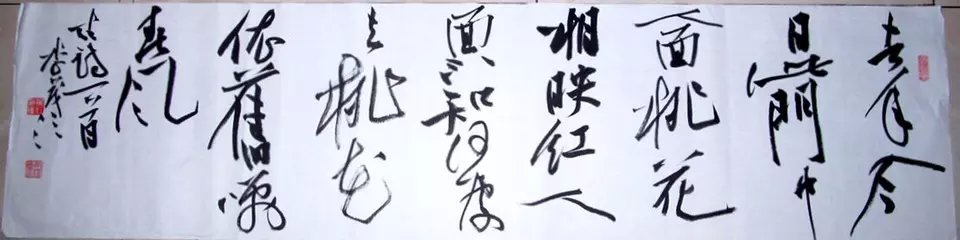 去年今
日此門中
人面桃花
相映紅人
面不知何處
去桃花
依舊咲
春風
古詩一首